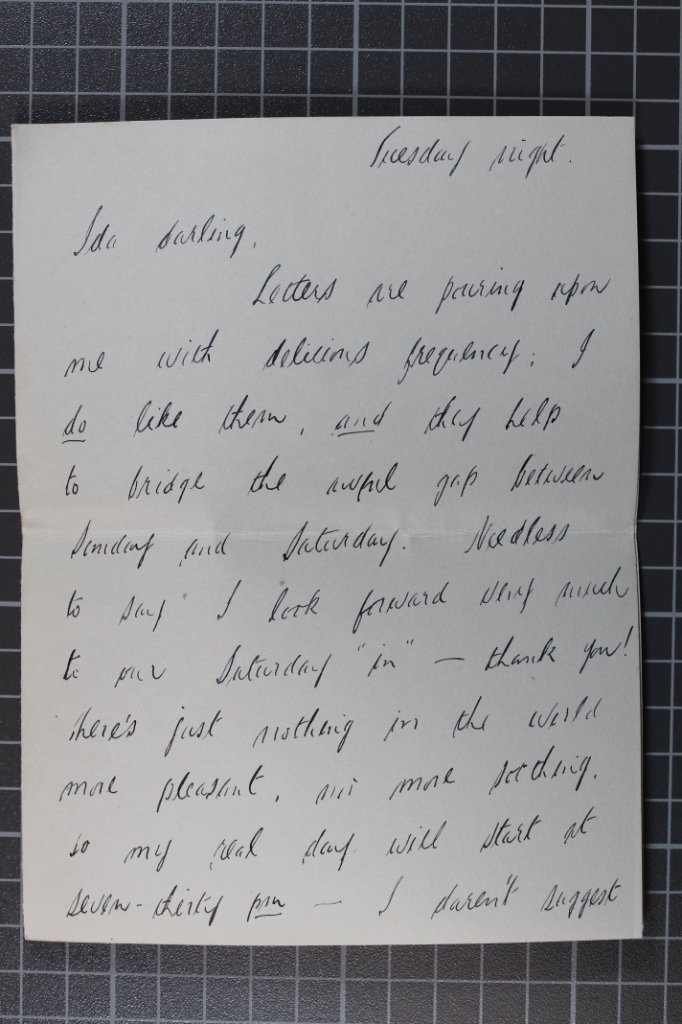 Tuesday night.
Ida darling,
Letters are pouring upon
me with delicious frequency; I
do like them, and they help
to bridge the awful gap between
Sunday and Saturday. Needless
to say I look forward very much
to our Saturday "in" — thank you!
there's just nothing in the world
more pleasant, nor more soothing,
so my real day will start at
seven-thirty pm — I daren't suggest